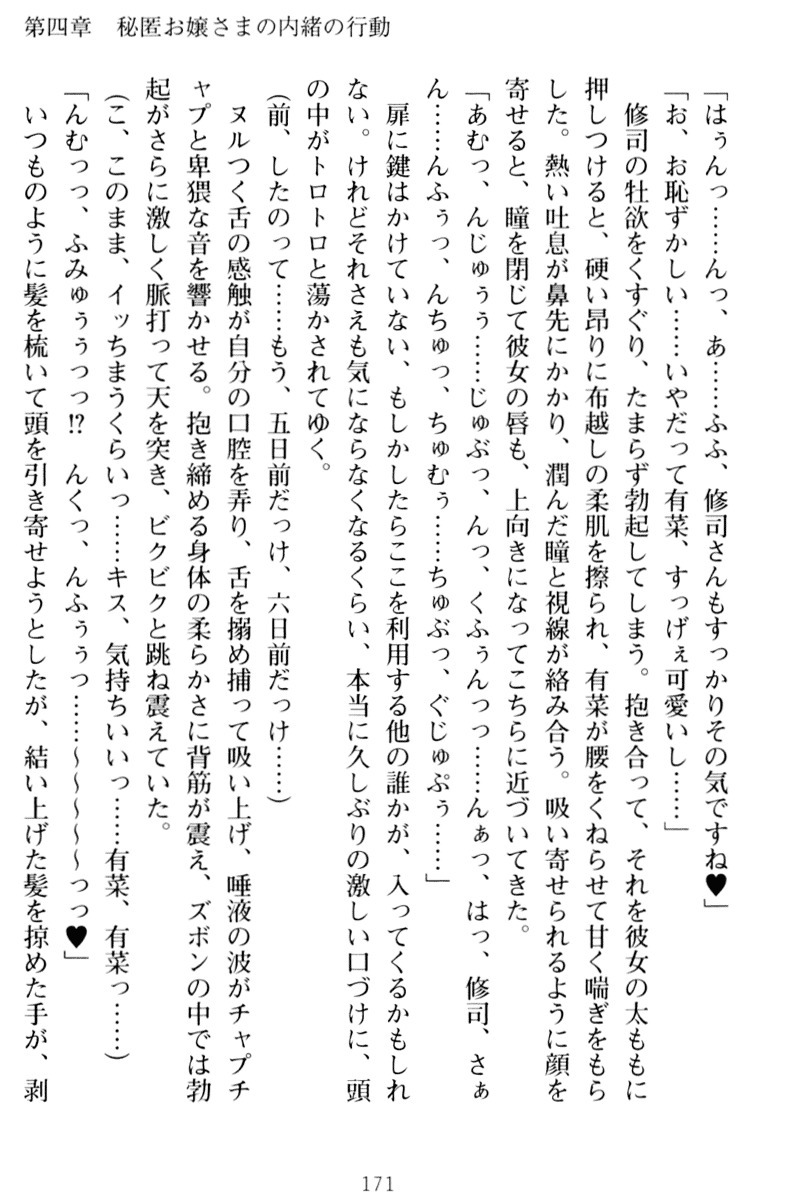 第四章　秘匿お嬢さまの内緒の行動
「はぅんっ……んっ、あ……ふふ、修司さんもすっかりその気ですね♥」
「お、お恥ずかしい……いやだって有菜、すっげぇ可愛いし……」
　修司の牡欲をくすぐり、たまらず勃起してしまう。抱き合って、それを彼女の太ももに
押しつけると、硬い昂りに布越しの柔肌を擦られ、有菜が腰をくねらせて甘く喘ぎをもら
した。熱い吐息が鼻先にかかり、潤んだ瞳と視線が絡み合う。吸い寄せられるように顔を
寄せると、瞳を閉じて彼女の唇も、上向きになってこちらに近づいてきた。
「あむっ、んじゅぅぅ……じゅぶっ、んっ、くふぅんっっ……んぁっ、はっ、修司、さぁ
ん……んふぅっ、んちゅっ、ちゅむぅ……ちゅぶっ、ぐじゅぷぅ……」
　扉に鍵はかけていない、もしかしたらここを利用する他の誰かが、入ってくるかもしれ
ない。けれどそれさえも気にならなくなるくらい、本当に久しぶりの激しい口づけに、頭
の中がトロトロと蕩かされてゆく。
（前、したのって……もう、五日前だっけ、六日前だっけ……）
　ヌルつく舌の感触が自分の口腔を弄り、舌を搦め捕って吸い上げ、唾液の波がチャプチ
ャプと卑猥な音を響かせる。抱き締める身体の柔らかさに背筋が震え、ズボンの中では勃
起がさらに激しく脈打って天を突き、ビクビクと跳ね震えていた。
（こ、このまま、イッちまうくらいっ……キス、気持ちいいっ……有菜、有菜っ……）
「んむっっ、ふみゅぅぅっっ!?　んくっ、んふぅぅっ……～～～～～っっ♥」
　いつものように髪を梳いて頭を引き寄せようとしたが、結い上げた髪を掠めた手が、剥
171